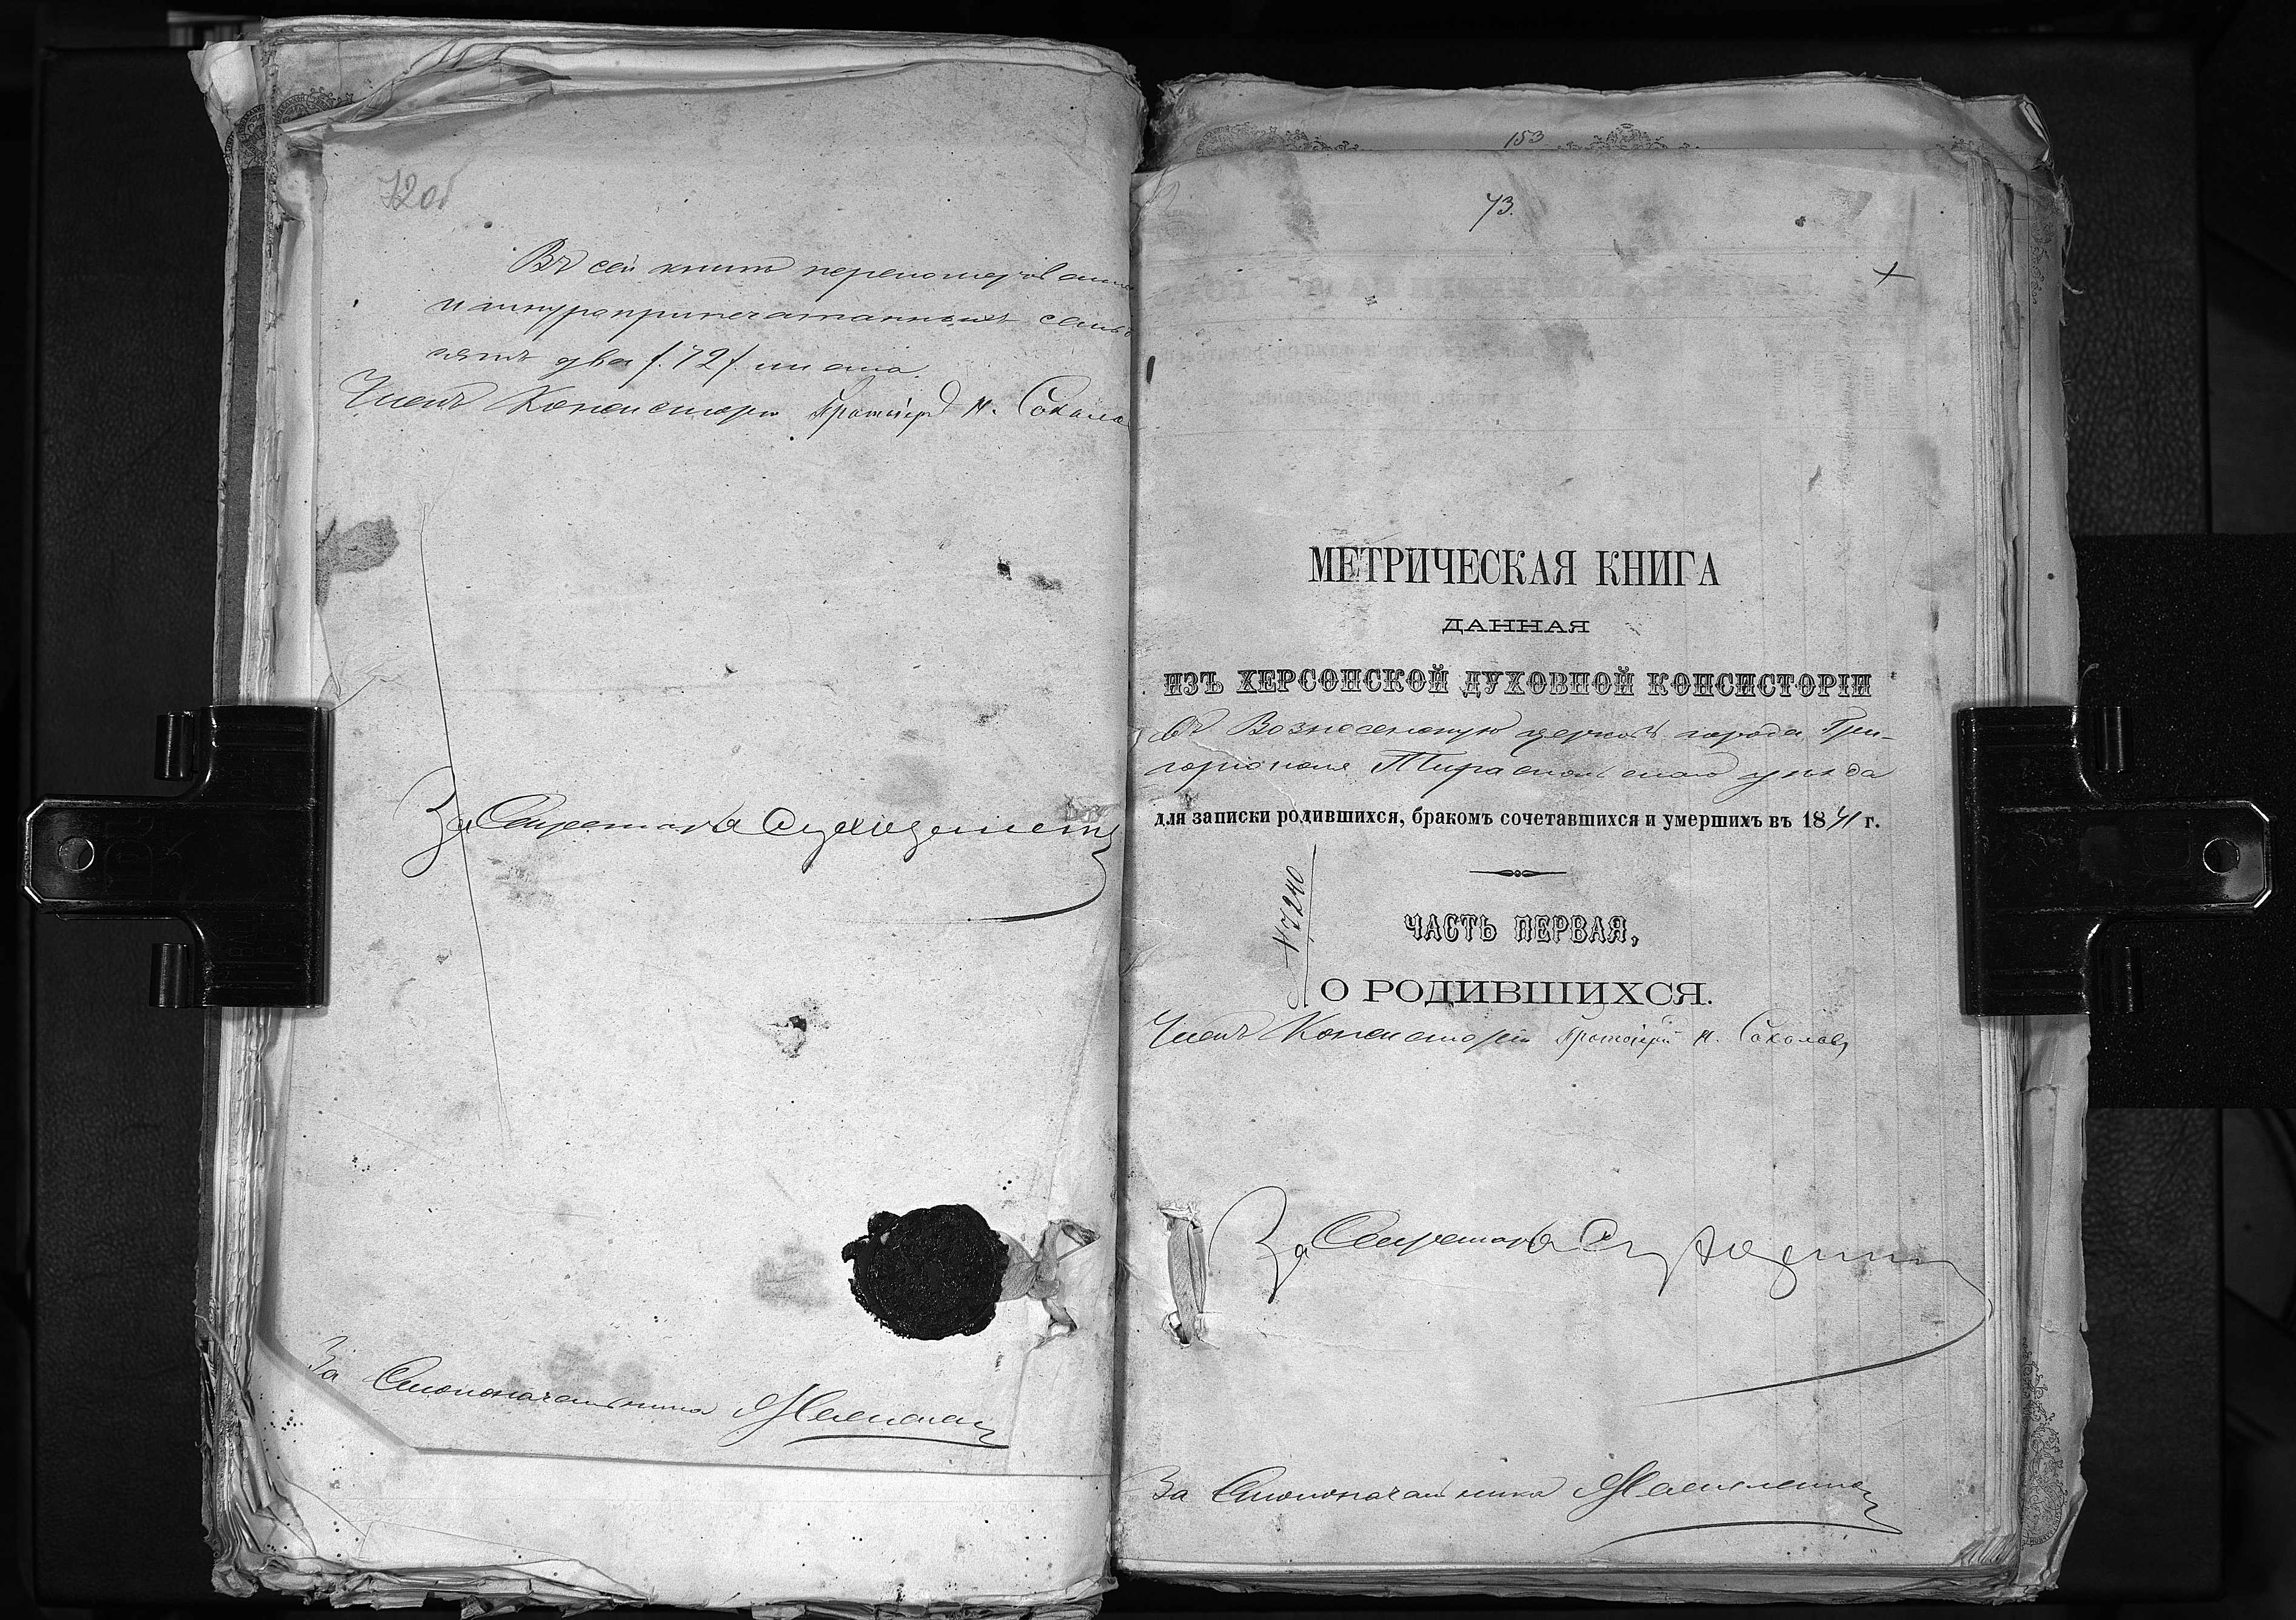 72об
Въ сей книгѣ перенумерованныхъ
и шнуроприпечатанныхъ семь
десятъ два /72/ листа.
Членъ Консисторіи Протоіерей Н. Соколов
За Секретаря
За Столоначальника
153
73.
МЕТРИЧЕСКАЯ КНИГА
ДАННАЯ
ИЗЪ ХЕРСОНСКОЙ ДУХОВНОЙ КОНСИСТОРІИ
въ Вознесенскую церковь города Гри-
горіополя Тираспольскаго уѣзда
для записки родившихся, бракомъ сочетавшихся и умершихъ въ 18 г.
№ 7240
ЧАСТЬ ПЕРВАЯ,
О РОДИВШИХСЯ.
Членъ Консисторіи Протоіерей Н. Соколовъ
За Секретаря
За Столоначальника